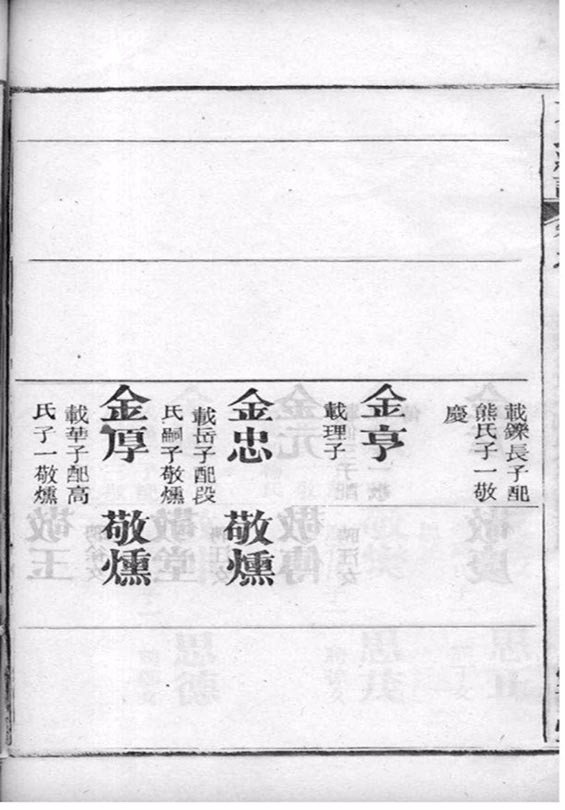 載鑠長子配
熊氏子一敬
慶
金亨
載理子
金忠
載岳子配段
氏嗣子敬燻
敬燻
金厚
載華子配高
氏子一敬燻
敬燻